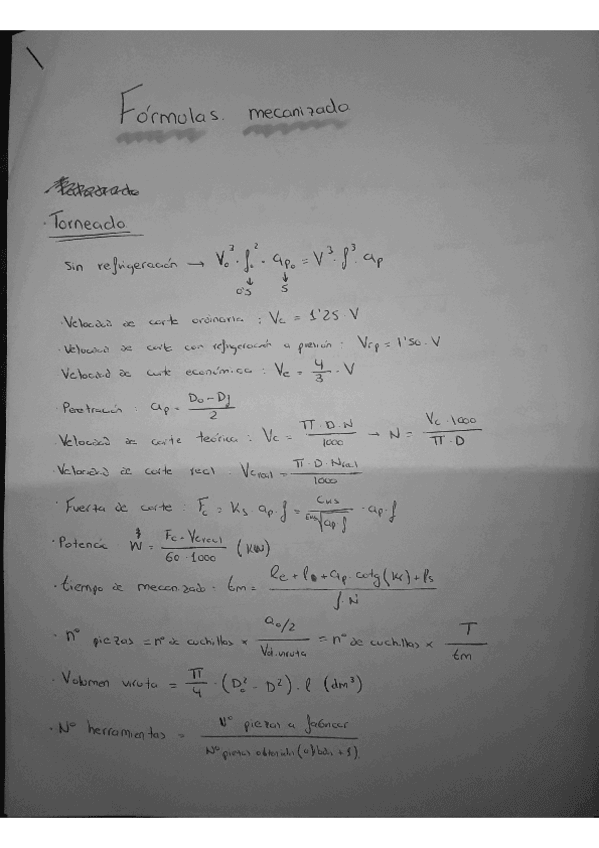 Fórmulas. mecanizado
· Torneado
Sin refrigeración → V₀³ · f₀² · ap₀ = V³ · f³ · ap
↓ ↓
0'5 5
· Velocidad de corte ordinaria : Vc = 1'25 · V
· Velocidad de corte con refrigeración a presión : Vcp = 1'50 · V
Velocidad de corte económica : Ve = 4/3 · V
· Penetración : ap = (D₀ - Df)/2
· Velocidad de corte teórica : Vc = (π · D · N)/1000 → N = (Vc · 1000)/(π · D)
· Velocidad de corte real · Vcreal = (π · D · Nreal)/1000
· Fuerza de corte : Fc = Ks · ap · f = · ap · f
· Potencia : Ẇ = (Fc · Vcreal)/(60 · 1000) (KW)
· tiempo de mecanizado · tm = /(f · N)
· nº piezas = nº de cuchillas × (a₀/2)/(Vol. viruta) = nº de cuchillas × T/tm
· Volumen viruta = π/4 · (D₀² - D²) · l (dm³)
· Nº herramientas = (Nº piezas a fabricar)/(Nº piezas obtenidas